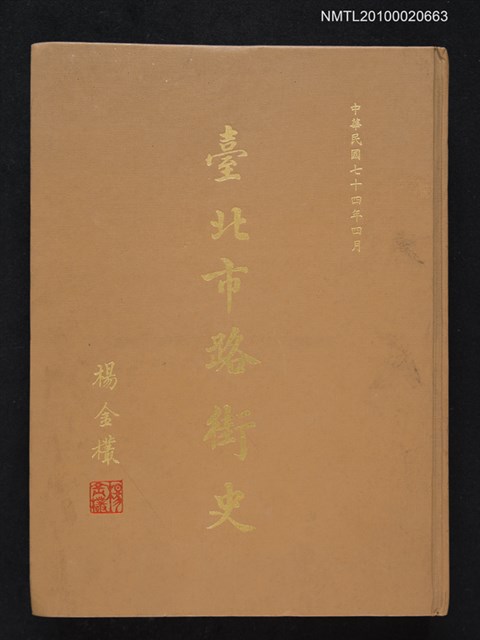 NMTL20100020663
中華民國七十四年四月
臺北市路街史
楊金欉